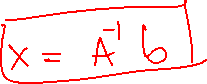 x = A⁻¹ b